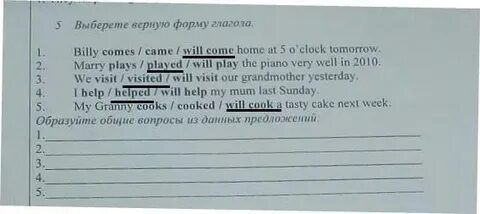 5 Выберете верную форму глагола.
1. Billy comes / came / will come home at 5 o'clock tomorrow.
2. Marry plays / played / will play the piano very well in 2010.
3. We visit / visited / will visit our grandmother yesterday.
4. I help / helped / will help my mum last Sunday.
5. My Granny cooks / cooked / will cook a tasty cake next week.
Образуйте общие вопросы из данных предложений.
1.
2.
3.
4.
5.